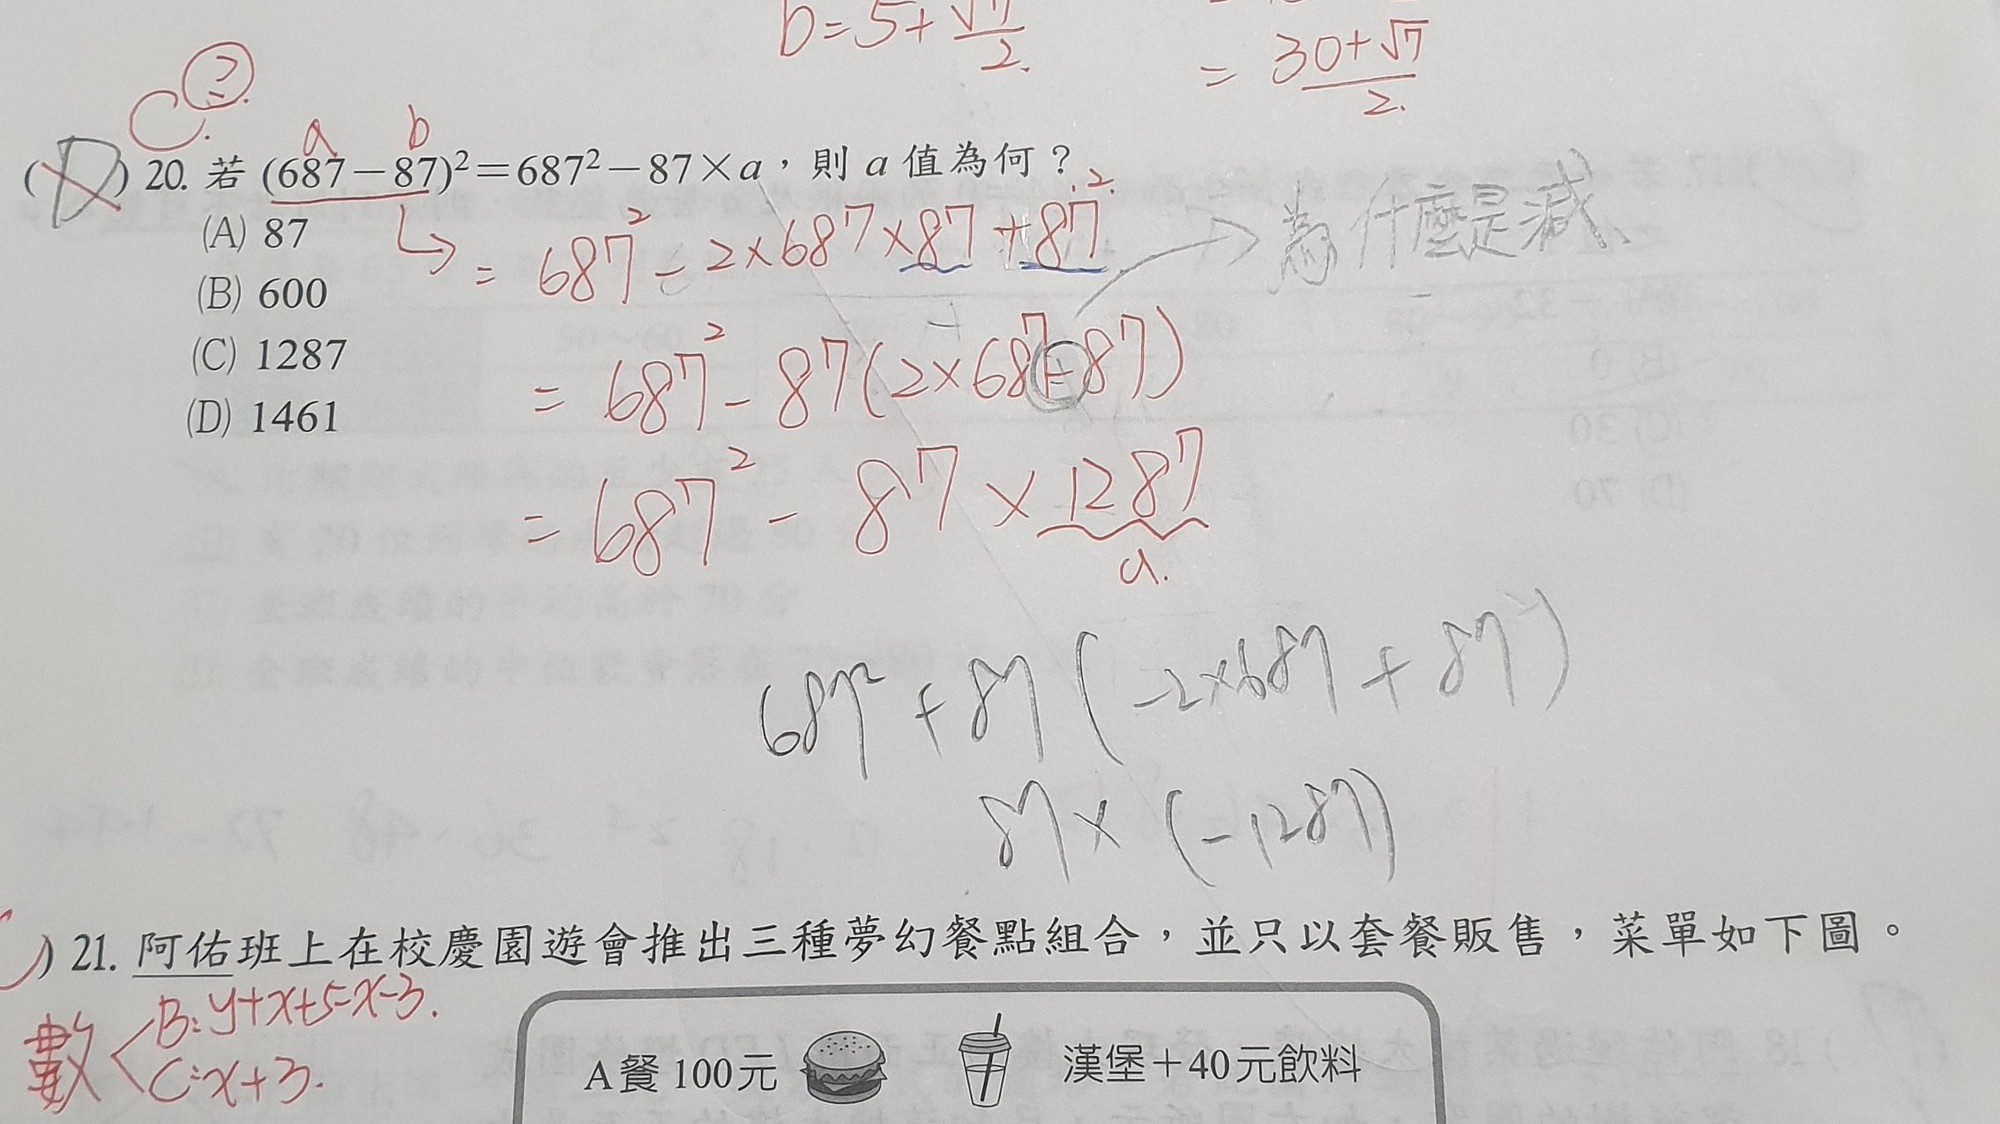 b=5+√7/2.
= 30+√7/2.
C. ?
a b
(D) 20. 若 (687−87)²=687²−87×a，則 a 值為何？
(A) 87
(B) 600
(C) 1287
(D) 1461
= 687²−2×687×87+87²
為什麼是減
= 687²−87(2×687−87)
= 687²−87×1287
a.
687²+87(−2×687+87)
87×(−1287)
) 21. 阿佑班上在校慶園遊會推出三種夢幻餐點組合，並只以套餐販售，菜單如下圖。
數 B:y+x+5=x-3.
C:x+3.
A餐100元 漢堡＋40元飲料